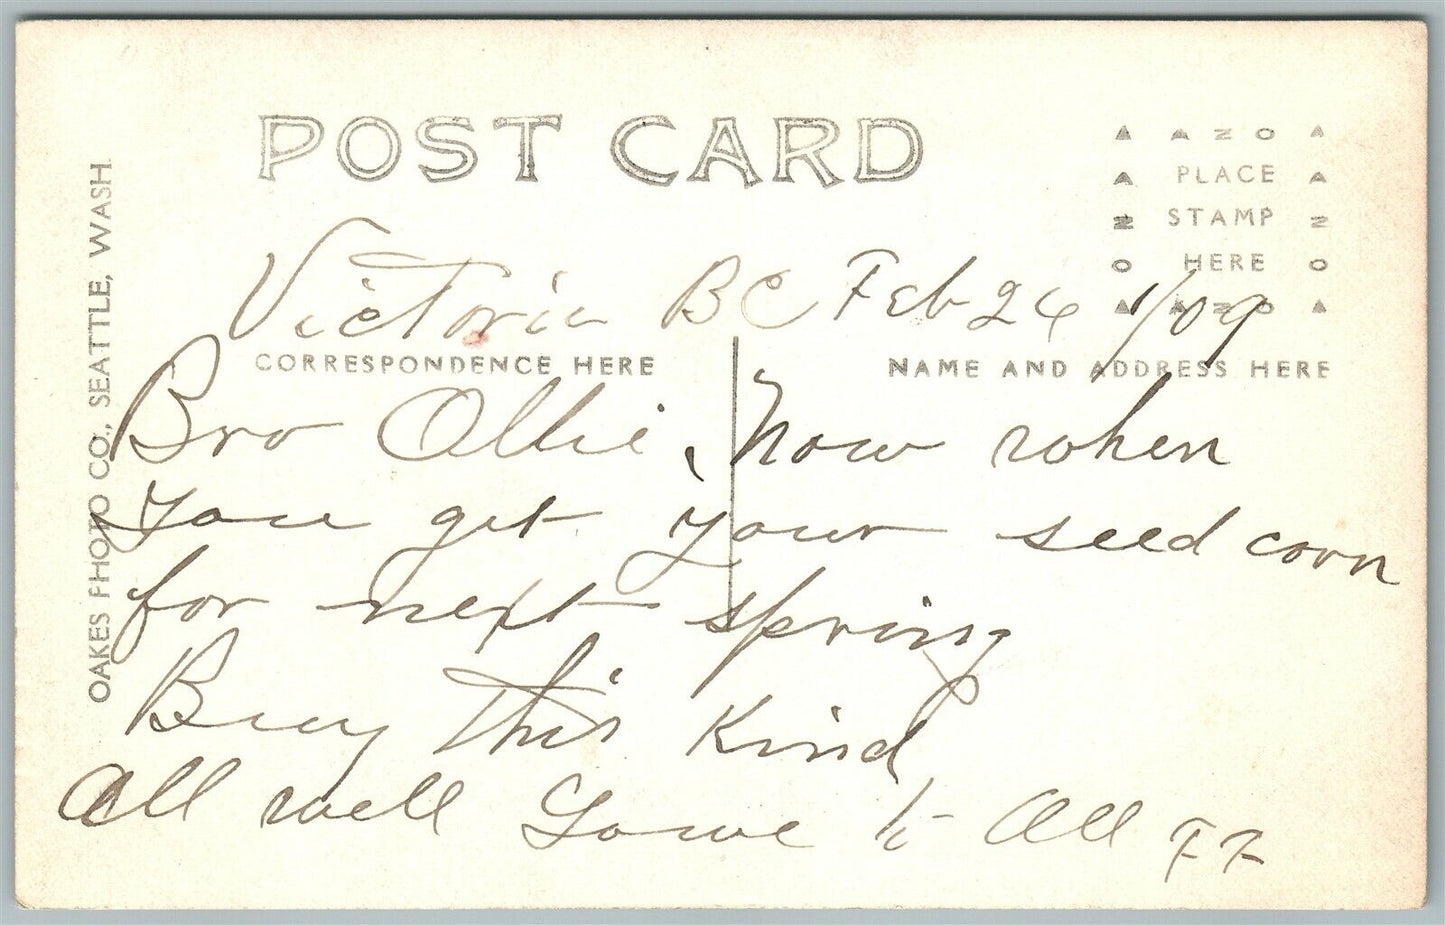 POST CARD
AZO
PLACE
STAMP
HERE
AZO
AZO
AZO
OAKES PHOTO CO., SEATTLE, WASH.
Victoria BC Feb 26 1/09
CORRESPONDENCE HERE
NAME AND ADDRESS HERE
Bro Ollie, Now when
you get your seed corn
for next spring
Buy this Kind
All well Love to All FF